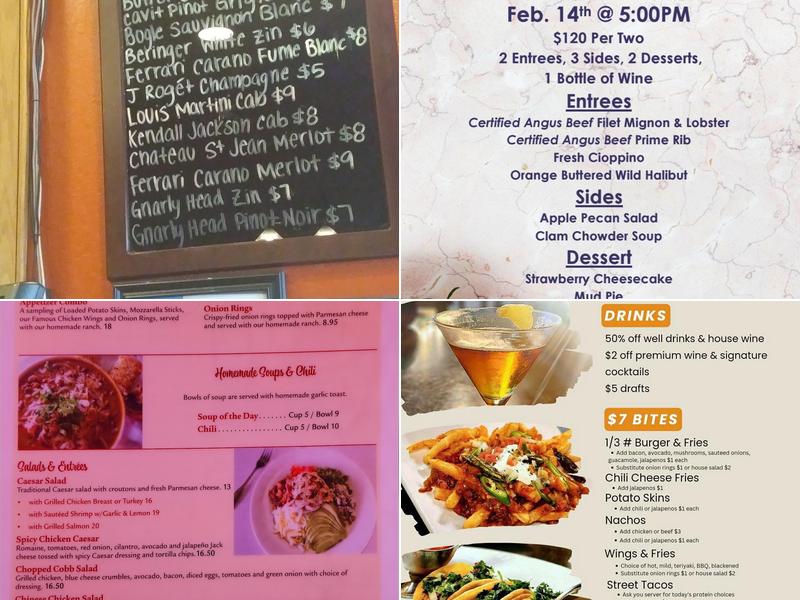 Cavit Pinot Grig
Bogle Sauvignon Blanc $7
Beringer White Zin $6
Ferrari Carano Fume Blanc $8
J Rogét Champagne $5
Louis Martini Cab $9
Kendall Jackson Cab $8
Chateau St Jean Merlot $8
Ferrari Carano Merlot $9
Gnarly Head Zin $7
Gnarly Head Pinot Noir $7
Feb. 14th @ 5:00PM
$120 Per Two
2 Entrees, 3 Sides, 2 Desserts,
1 Bottle of Wine
Entrees
Certified Angus Beef Filet Mignon & Lobster
Certified Angus Beef Prime Rib
Fresh Cioppino
Orange Buttered Wild Halibut
Sides
Apple Pecan Salad
Clam Chowder Soup
Dessert
Strawberry Cheesecake
Mud Pie
Appetizer Combo
A sampling of Loaded Potato Skins, Mozzarella Sticks,
our Famous Chicken Wings and Onion Rings, served
with our homemade ranch. 18
Onion Rings
Crispy-fried onion rings topped with Parmesan cheese
and served with our homemade ranch. 8.95
Homemade Soups & Chili
Bowls of soup are served with homemade garlic toast.
Soup of the Day....... Cup 5 / Bowl 9
Chili................ Cup 5 / Bowl 10
Salads & Entrées
Caesar Salad
Traditional Caesar salad with croutons and fresh Parmesan cheese. 13
• with Grilled Chicken Breast or Turkey 16
• with Sautéed Shrimp w/Garlic & Lemon 19
• with Grilled Salmon 20
Spicy Chicken Caesar
Romaine, tomatoes, red onion, cilantro, avocado and jalapeño Jack
cheese tossed with spicy Caesar dressing and tortilla chips. 16.50
Chopped Cobb Salad
Grilled chicken, blue cheese crumbles, avocado, bacon, diced eggs, tomatoes and green onion with choice of
dressing. 16.50
Chinese Chicken Salad
DRINKS
50% off well drinks & house wine
$2 off premium wine & signature
cocktails
$5 drafts
$7 BITES
1/3 # Burger & Fries
• Add bacon, avocado, mushrooms, sauteed onions,
guacamole, jalapenos $1 each
• Substitute onion rings $1 or house salad $2
Chili Cheese Fries
• Add jalapenos $1
Potato Skins
• Add chili or jalapenos $1 each
Nachos
• Add chicken or beef $3
• Add chili or jalapenos $1 each
Wings & Fries
• Choice of hot, mild, teriyaki, BBQ, blackened
• Substitute onion rings $1 or house salad $2
Street Tacos
• Ask you server for today's protein choices